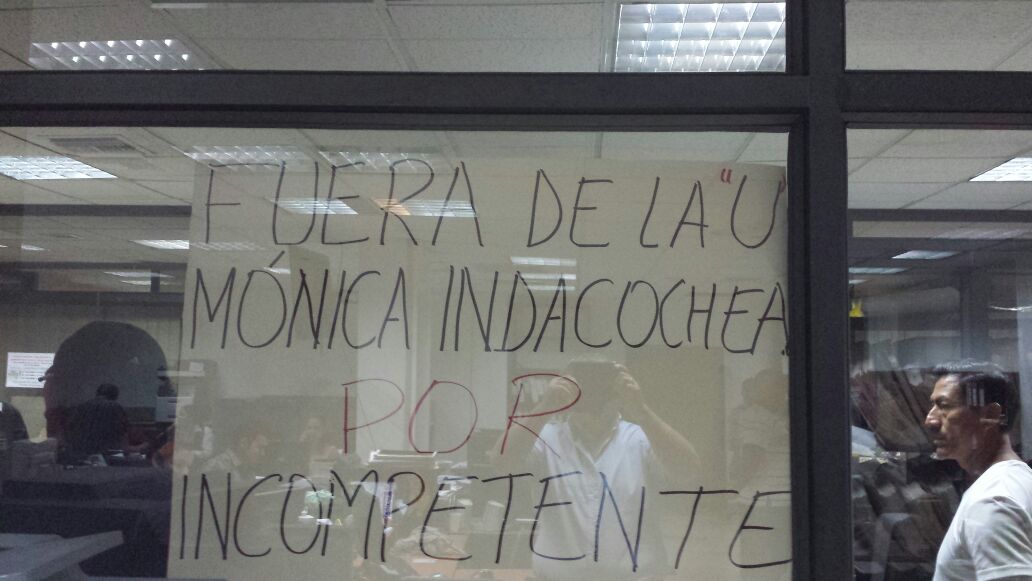 FUERA DE LA "U"
MÓNICA INDACOCHEA.
POR
INCOMPETENTE